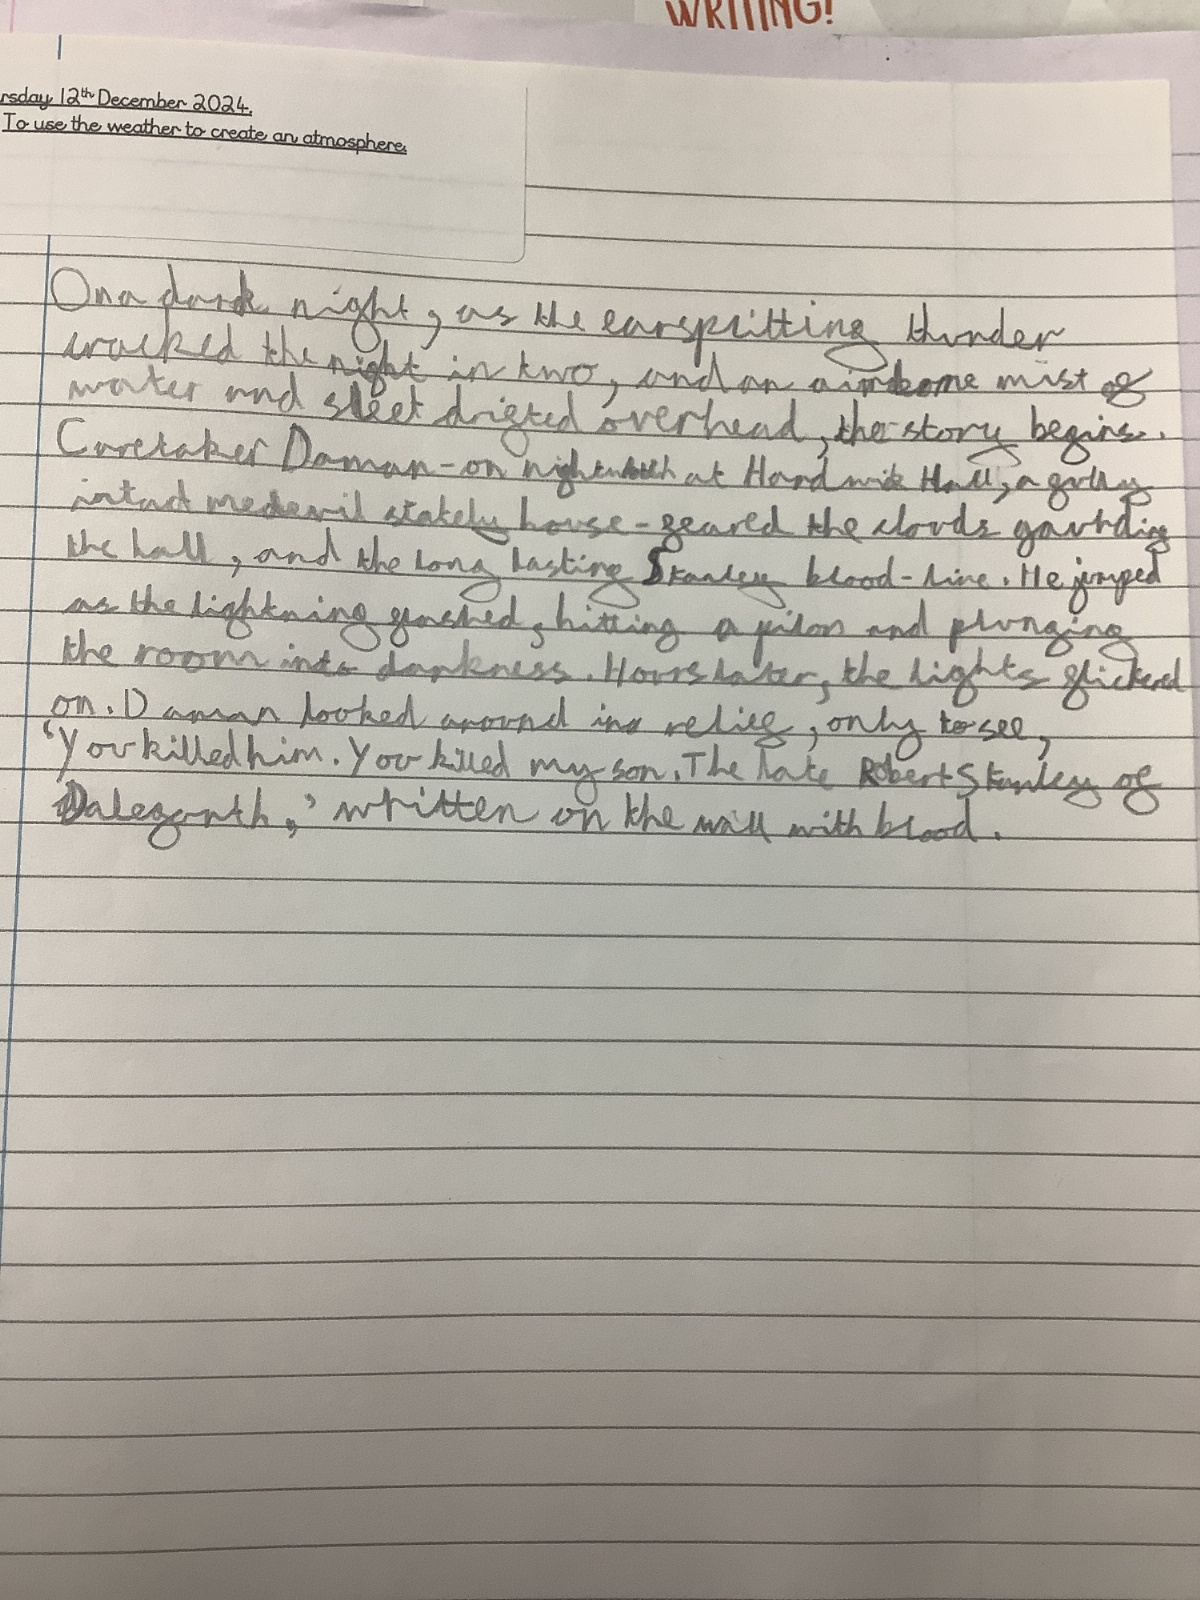 WRITING!
rsday 12th December 2024.
To use the weather to create an atmosphere.
On a dark night, as the earsplitting thunder
cracked the night in two, and an airnborne mist of
water and sleet drifted overhead, the story begins.
Caretaker Daman - on nightwatch at Hardwick Hall, a fully
intact medevil stately house - feared the clouds gaurding
the hall, and the long lasting Stanley blood-line. He jumped
as the lightning flashed, hitting a pilon and plunging
the room into darkness. Hours later, the lights flickered
on. Daman looked around in relief, only to see,
'You killed him. You killed my son. The late Robert Stanley of
Dalegarth,' written on the wall with blood.